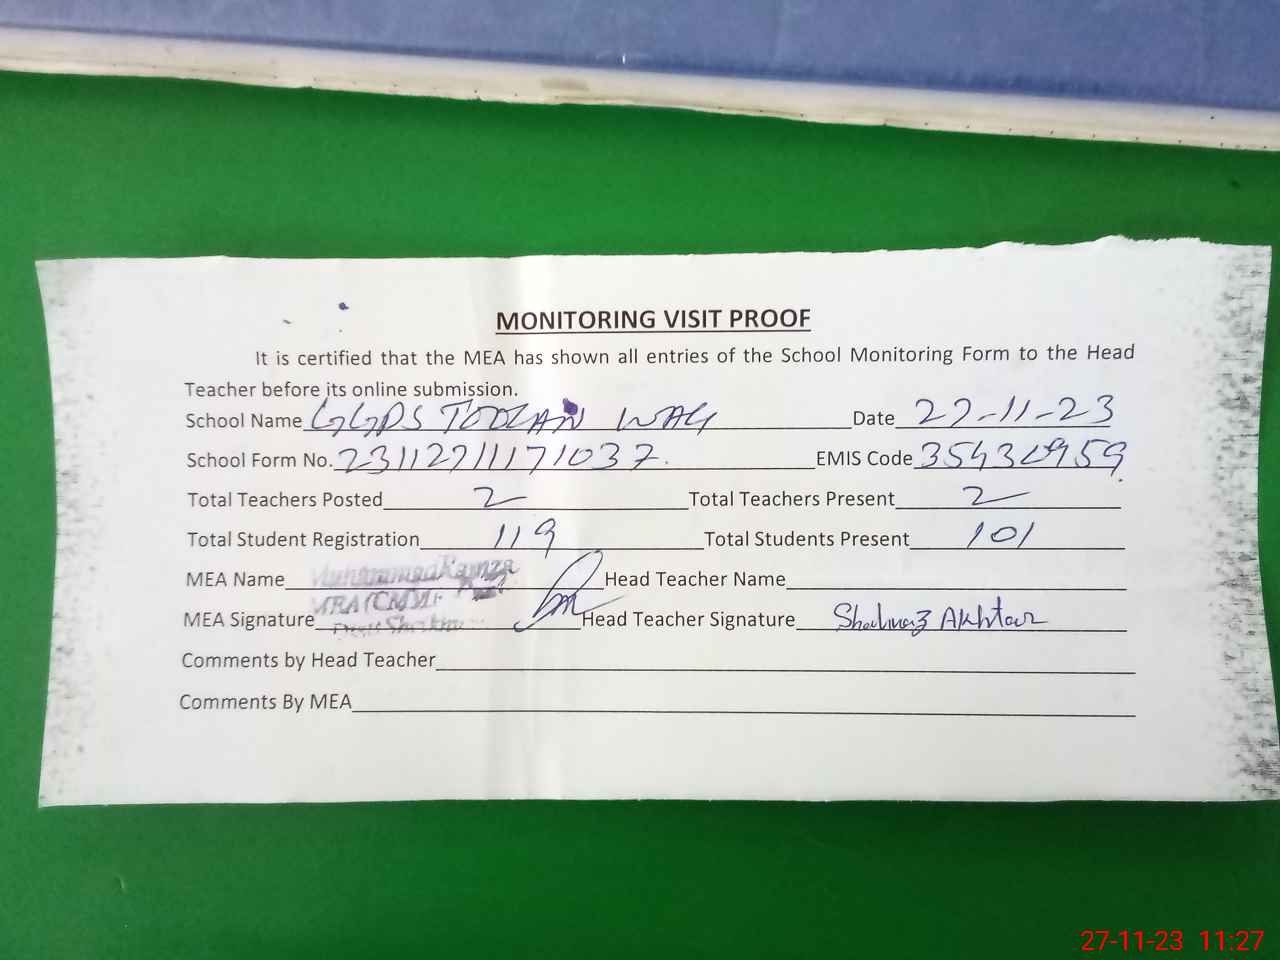 MONITORING VISIT PROOF
It is certified that the MEA has shown all entries of the School Monitoring Form to the Head
Teacher before its online submission.
School Name GGPS TOOLAN WAG Date 27-11-23
School Form No. 23112711171037. EMIS Code 35430959
Total Teachers Posted 2 Total Teachers Present 2
Total Student Registration 119 Total Students Present 101
MEA Name Muhammad Head Teacher Name
MEA Signature Head Teacher Signature Shahnaz Akhtar
Comments by Head Teacher
Comments By MEA
27-11-23 11:27